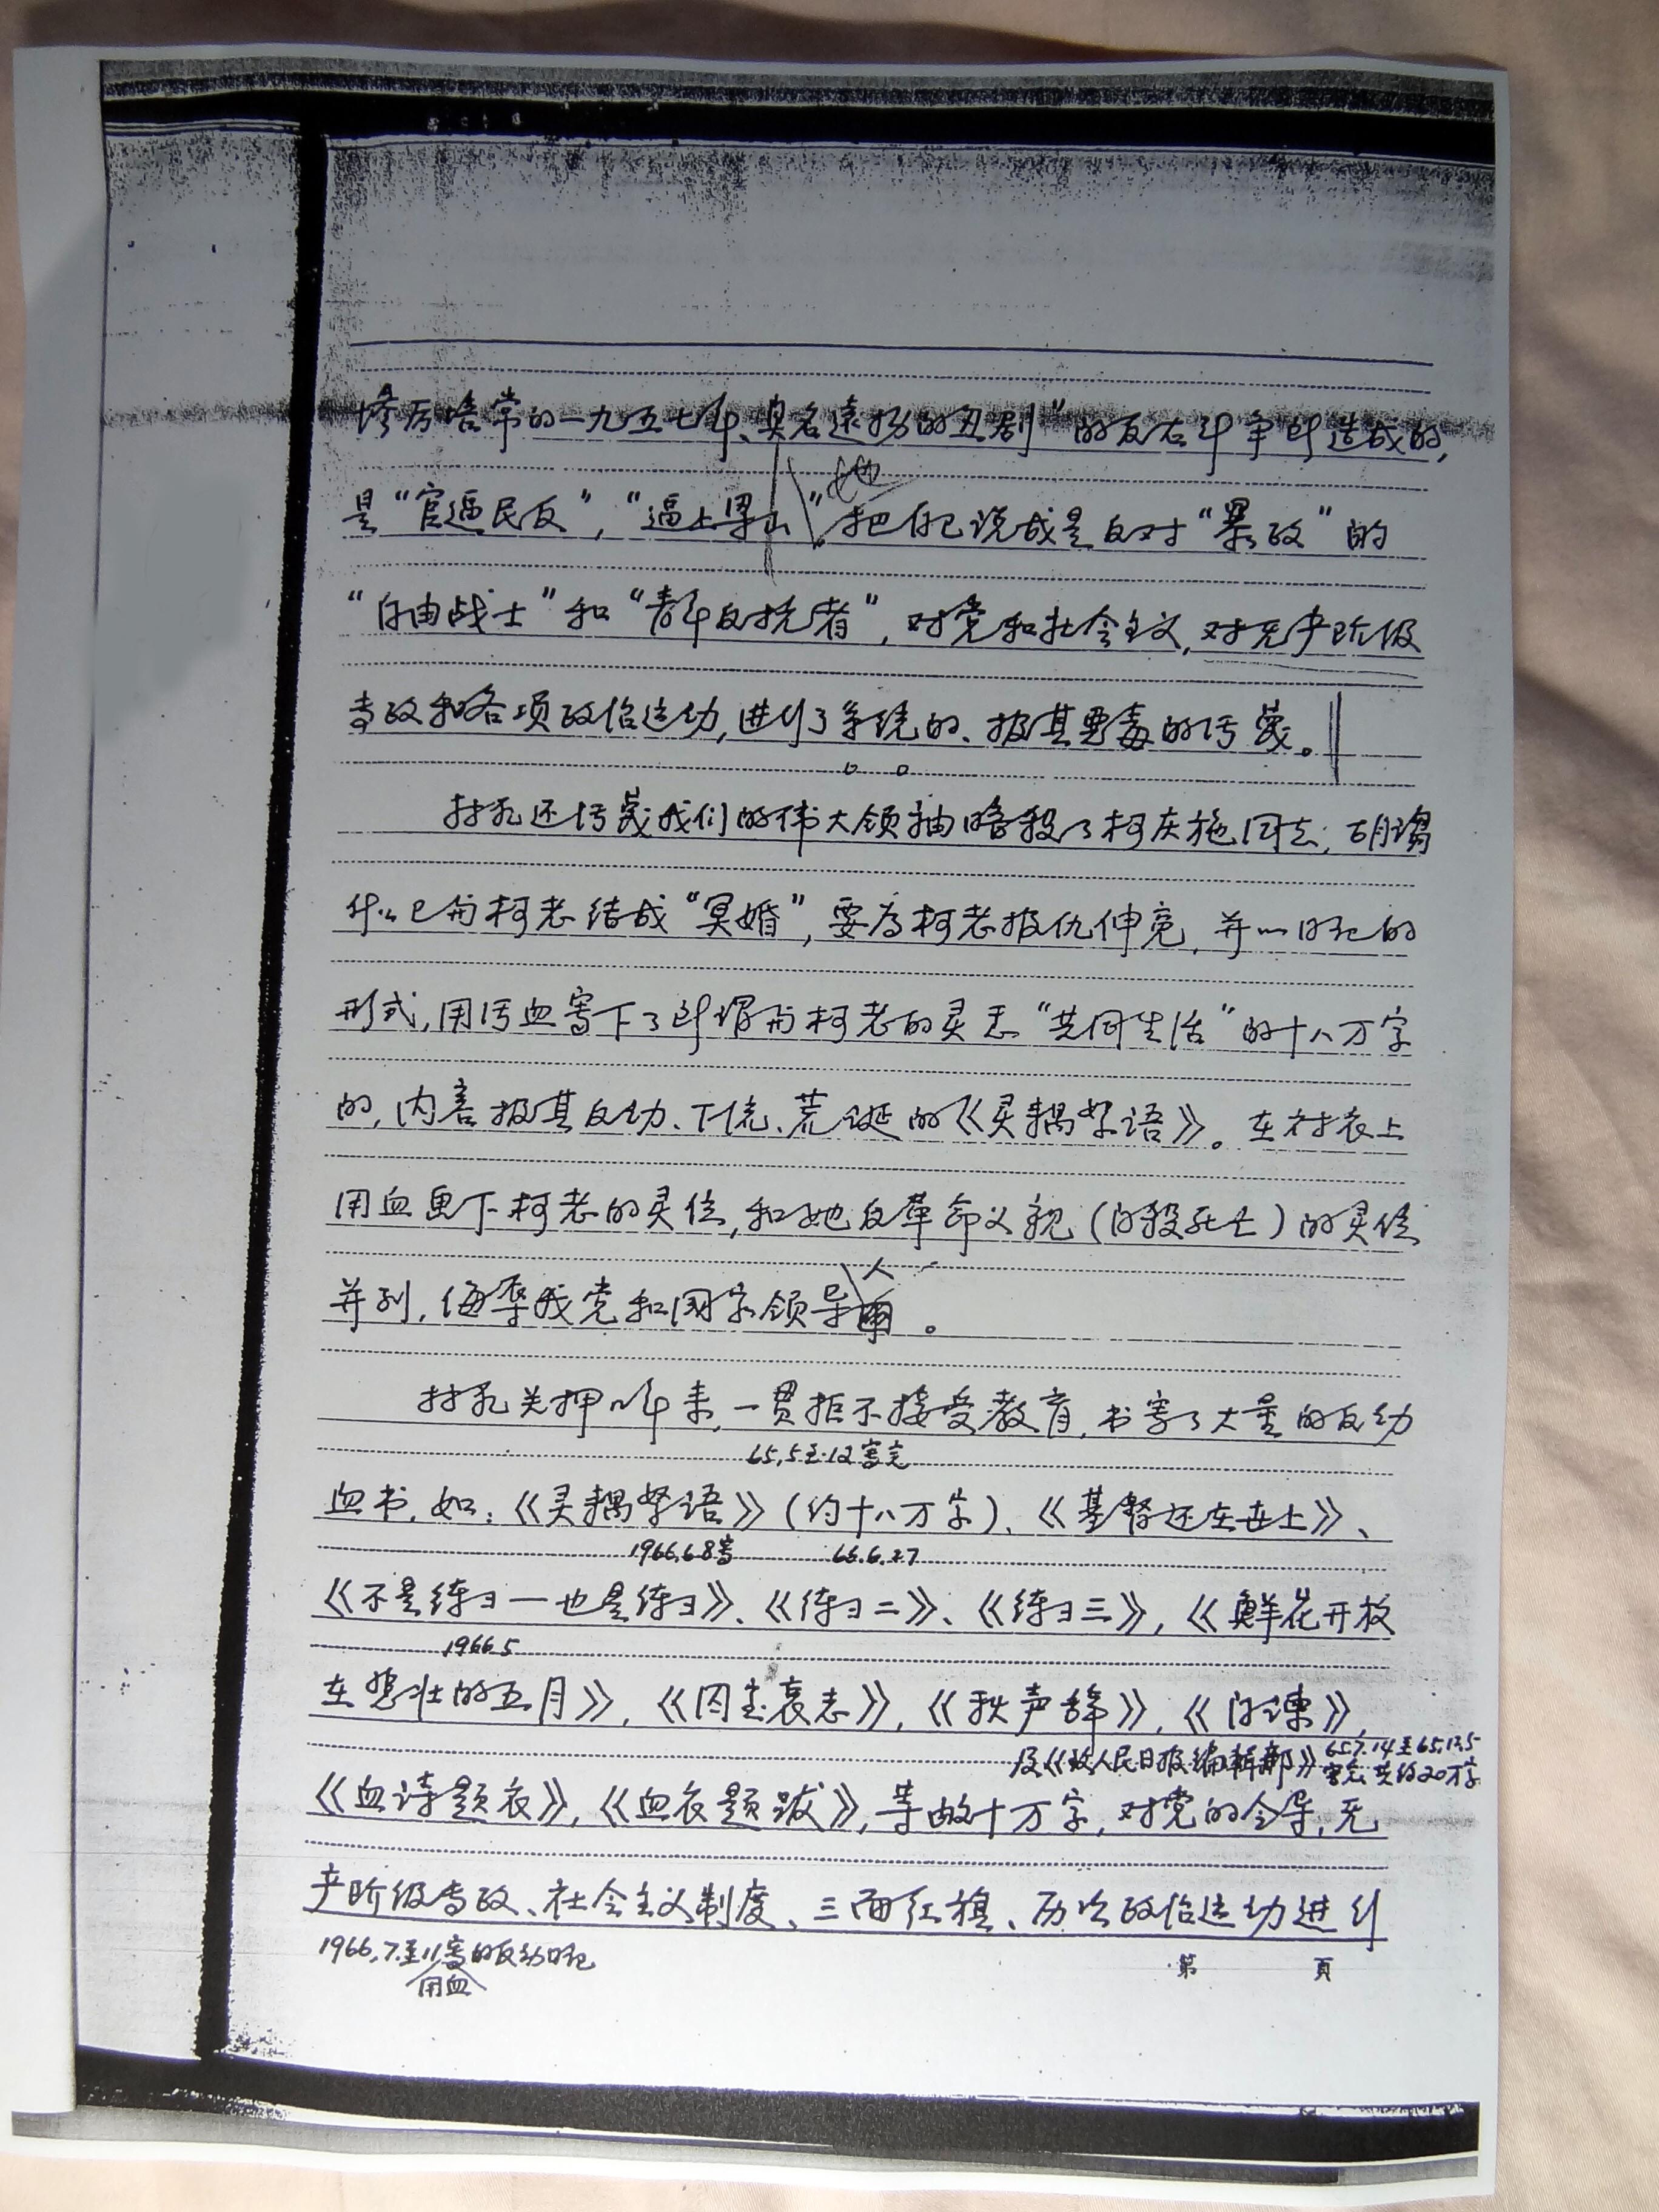 惨厉啥常的一九五七年、臭名远扬的丑剧”的反右斗争所造成的,
是“官逼民反”,“逼上梁山”。她把自己说成是反对“暴政”的
“自由战士”和“青年反抗者”,对党和社会主义,对无产阶级
专政和各项政治运动,进行了系统的、极其恶毒的污蔑。
林犯还污蔑我们的伟大领袖暗杀了柯庆施同志;胡谓
什么已与柯老结成“冥婚”,要为柯老报仇伸冤,并以日记的
形式,用污血写下了所谓与柯老的灵“共同生活”的十八万字
的,内容极其反动、下流、荒诞的《灵耦絮语》。在衬衣上
用血画下柯老的灵位,和她反革命父亲(自杀死亡)的灵位
并列,侮辱我党和国家领导人。
林犯关押以来,一贯拒不接受教育,书写了大量的反动
65.5至12写完
血书,如:《灵耦絮语》(约十八万字)、《基督还在世上》、
1966.6.8写 65.6.27
《不是练习—也是练习》、《练习二》、《练习三》,《鲜花开放
1966.5
在悲壮的五月》,《囚室哀志》,《秋声辞》,《自诔》,
及《致人民日报编辑部》65.7.14至65.12.5
写完 共约20万字
《血诗题衣》,《血衣题跋》,等数十万字,对党的令导,无
产阶级专政、社会主义制度、三面红旗、历次政治运动进行
1966.7至11写的反动日记
用血
第 頁